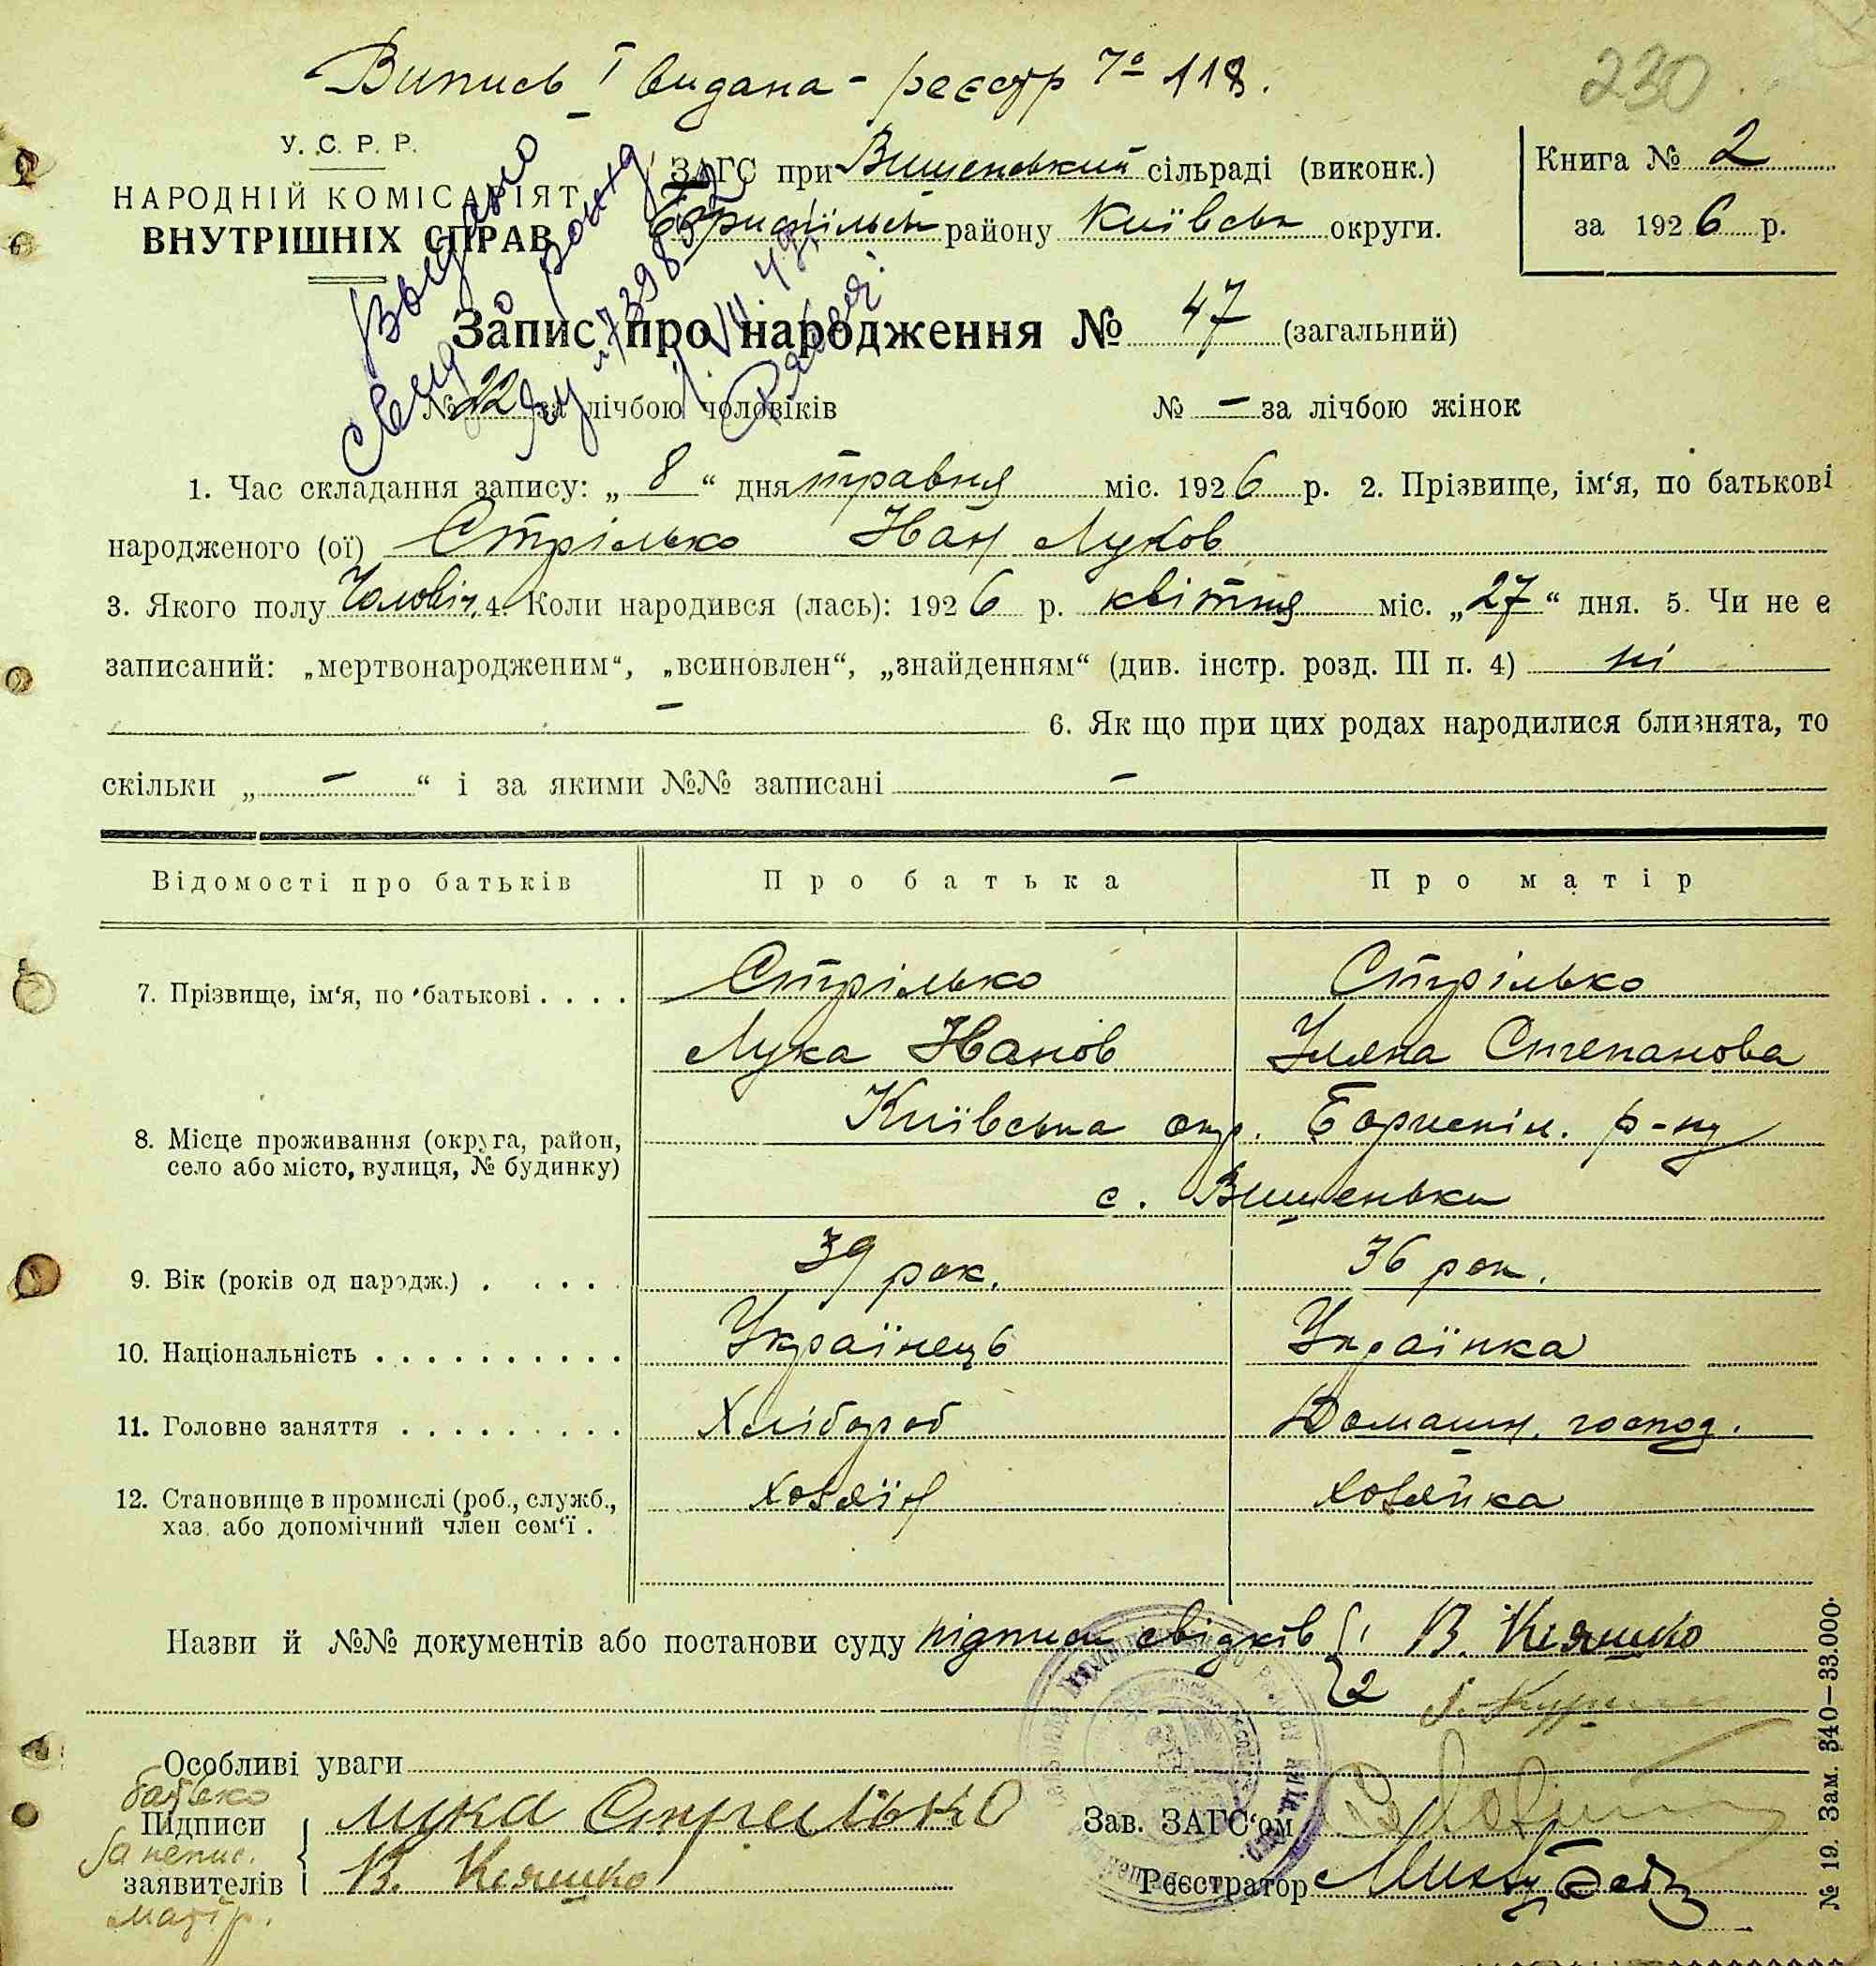 Випись І видана - реєстр № 118.
230
У. С. Р. Р.
НАРОДНІЙ КОМІСАРІЯТ
ВНУТРІШНІХ СПРАВ
ЗАГС при Вишеньський сільраді (виконк.)
Бориспільськ району Київськ округи.
Книга № 2
за 1926 р.
Выдано
Запис про народження № 47 (загальний)
№ 22 за лічбою чоловіків № — за лічбою жінок
1. Час складання запису: „ 8 “ дня травня міс. 1926 р. 2. Прізвище, ім‘я, по батькові
народженого (ої) Стрілько Іван Луков
3. Якого полу Чоловіч. 4. Коли народився (лась): 1926 р. квітня міс. „27“ дня. 5. Чи не є
записаний: „мертвонародженим“, „всиновлен“, „знайденням“ (див. інстр. розд. III п. 4) ні
— 6. Як що при цих родах народилися близнята, то
скільки „ — “ і за якими №№ записані —
Відомості про батьків Про батька Про матір
7. Прізвище, ім‘я, по батькові . . . . Стрілько Стрілько
Лука Іванов Уляна Степанова
8. Місце проживання (округа, район, село або місто, вулиця, № будинку) Київська окр. Бориспіл. р-ну
с. Вишеньки
9. Вік (років од народж.) . . . . 39 рок. 36 рок.
10. Національність . . . . . . . . . . Українець Українка
11. Головне заняття . . . . . . . . . Хлібороб Домашн. господ.
12. Становище в промислі (роб., служб., Хозяїн Хозяйка
хаз. або допомічний член сем‘ї .
Назви й №№ документів або постанови суду підписи свідків 1 В. Кияшко
2
Особливі уваги
батько
Підписи Лука Стрелько Зав. ЗАГС‘ом
за непис.
заявителів В. Кияшко Реєстратор
матір.
№ 19. Зам. 340—33.000.